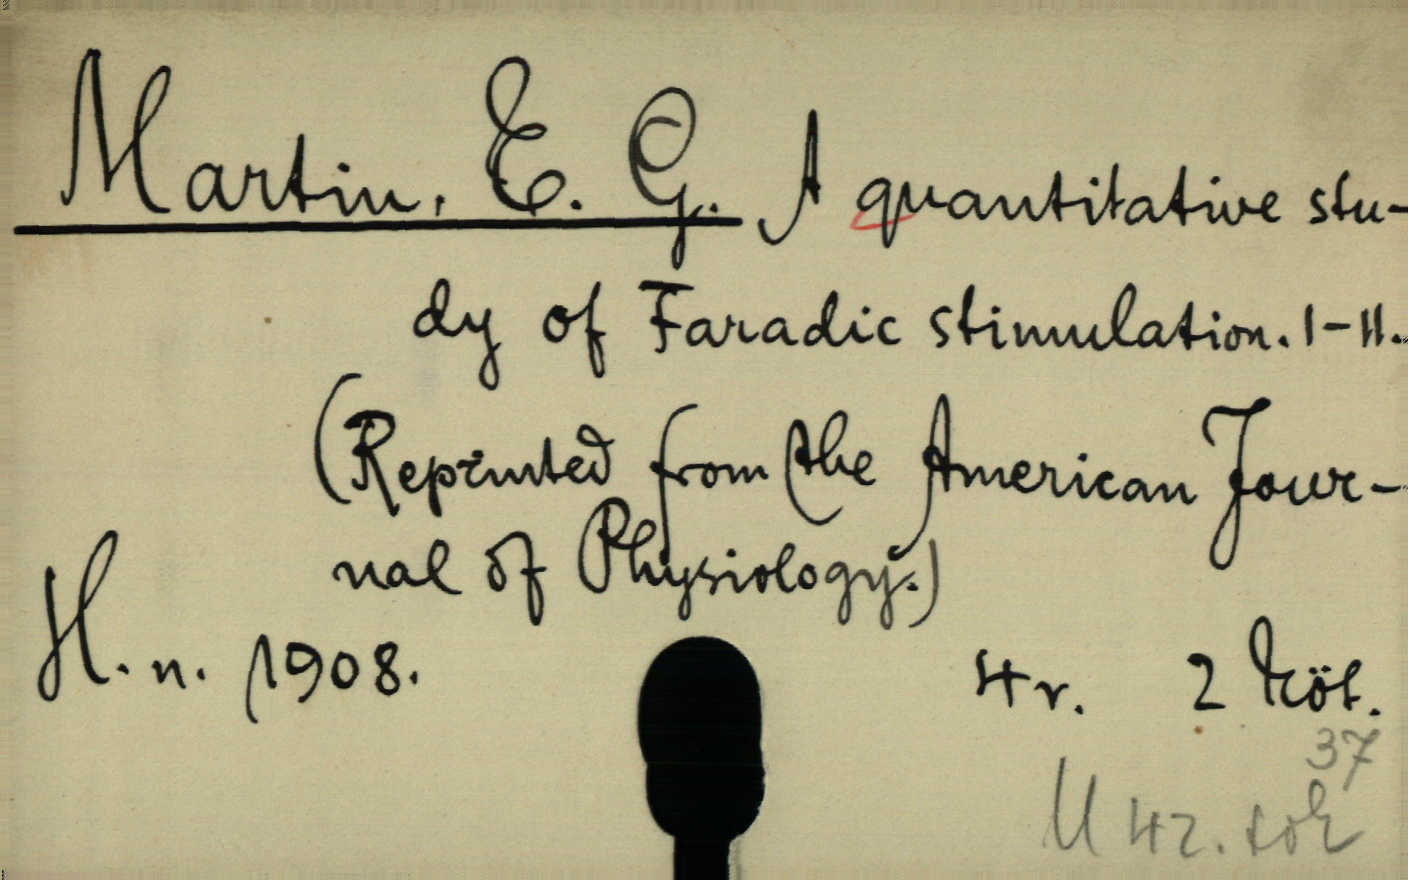 Martin, E. G. A quantitative stu-
dy of Faradic stimulation. I-II.
(Reprinted from the American Jour-
nal of Physiology.)
H. n. 1908. 4r. 2 köt.
37